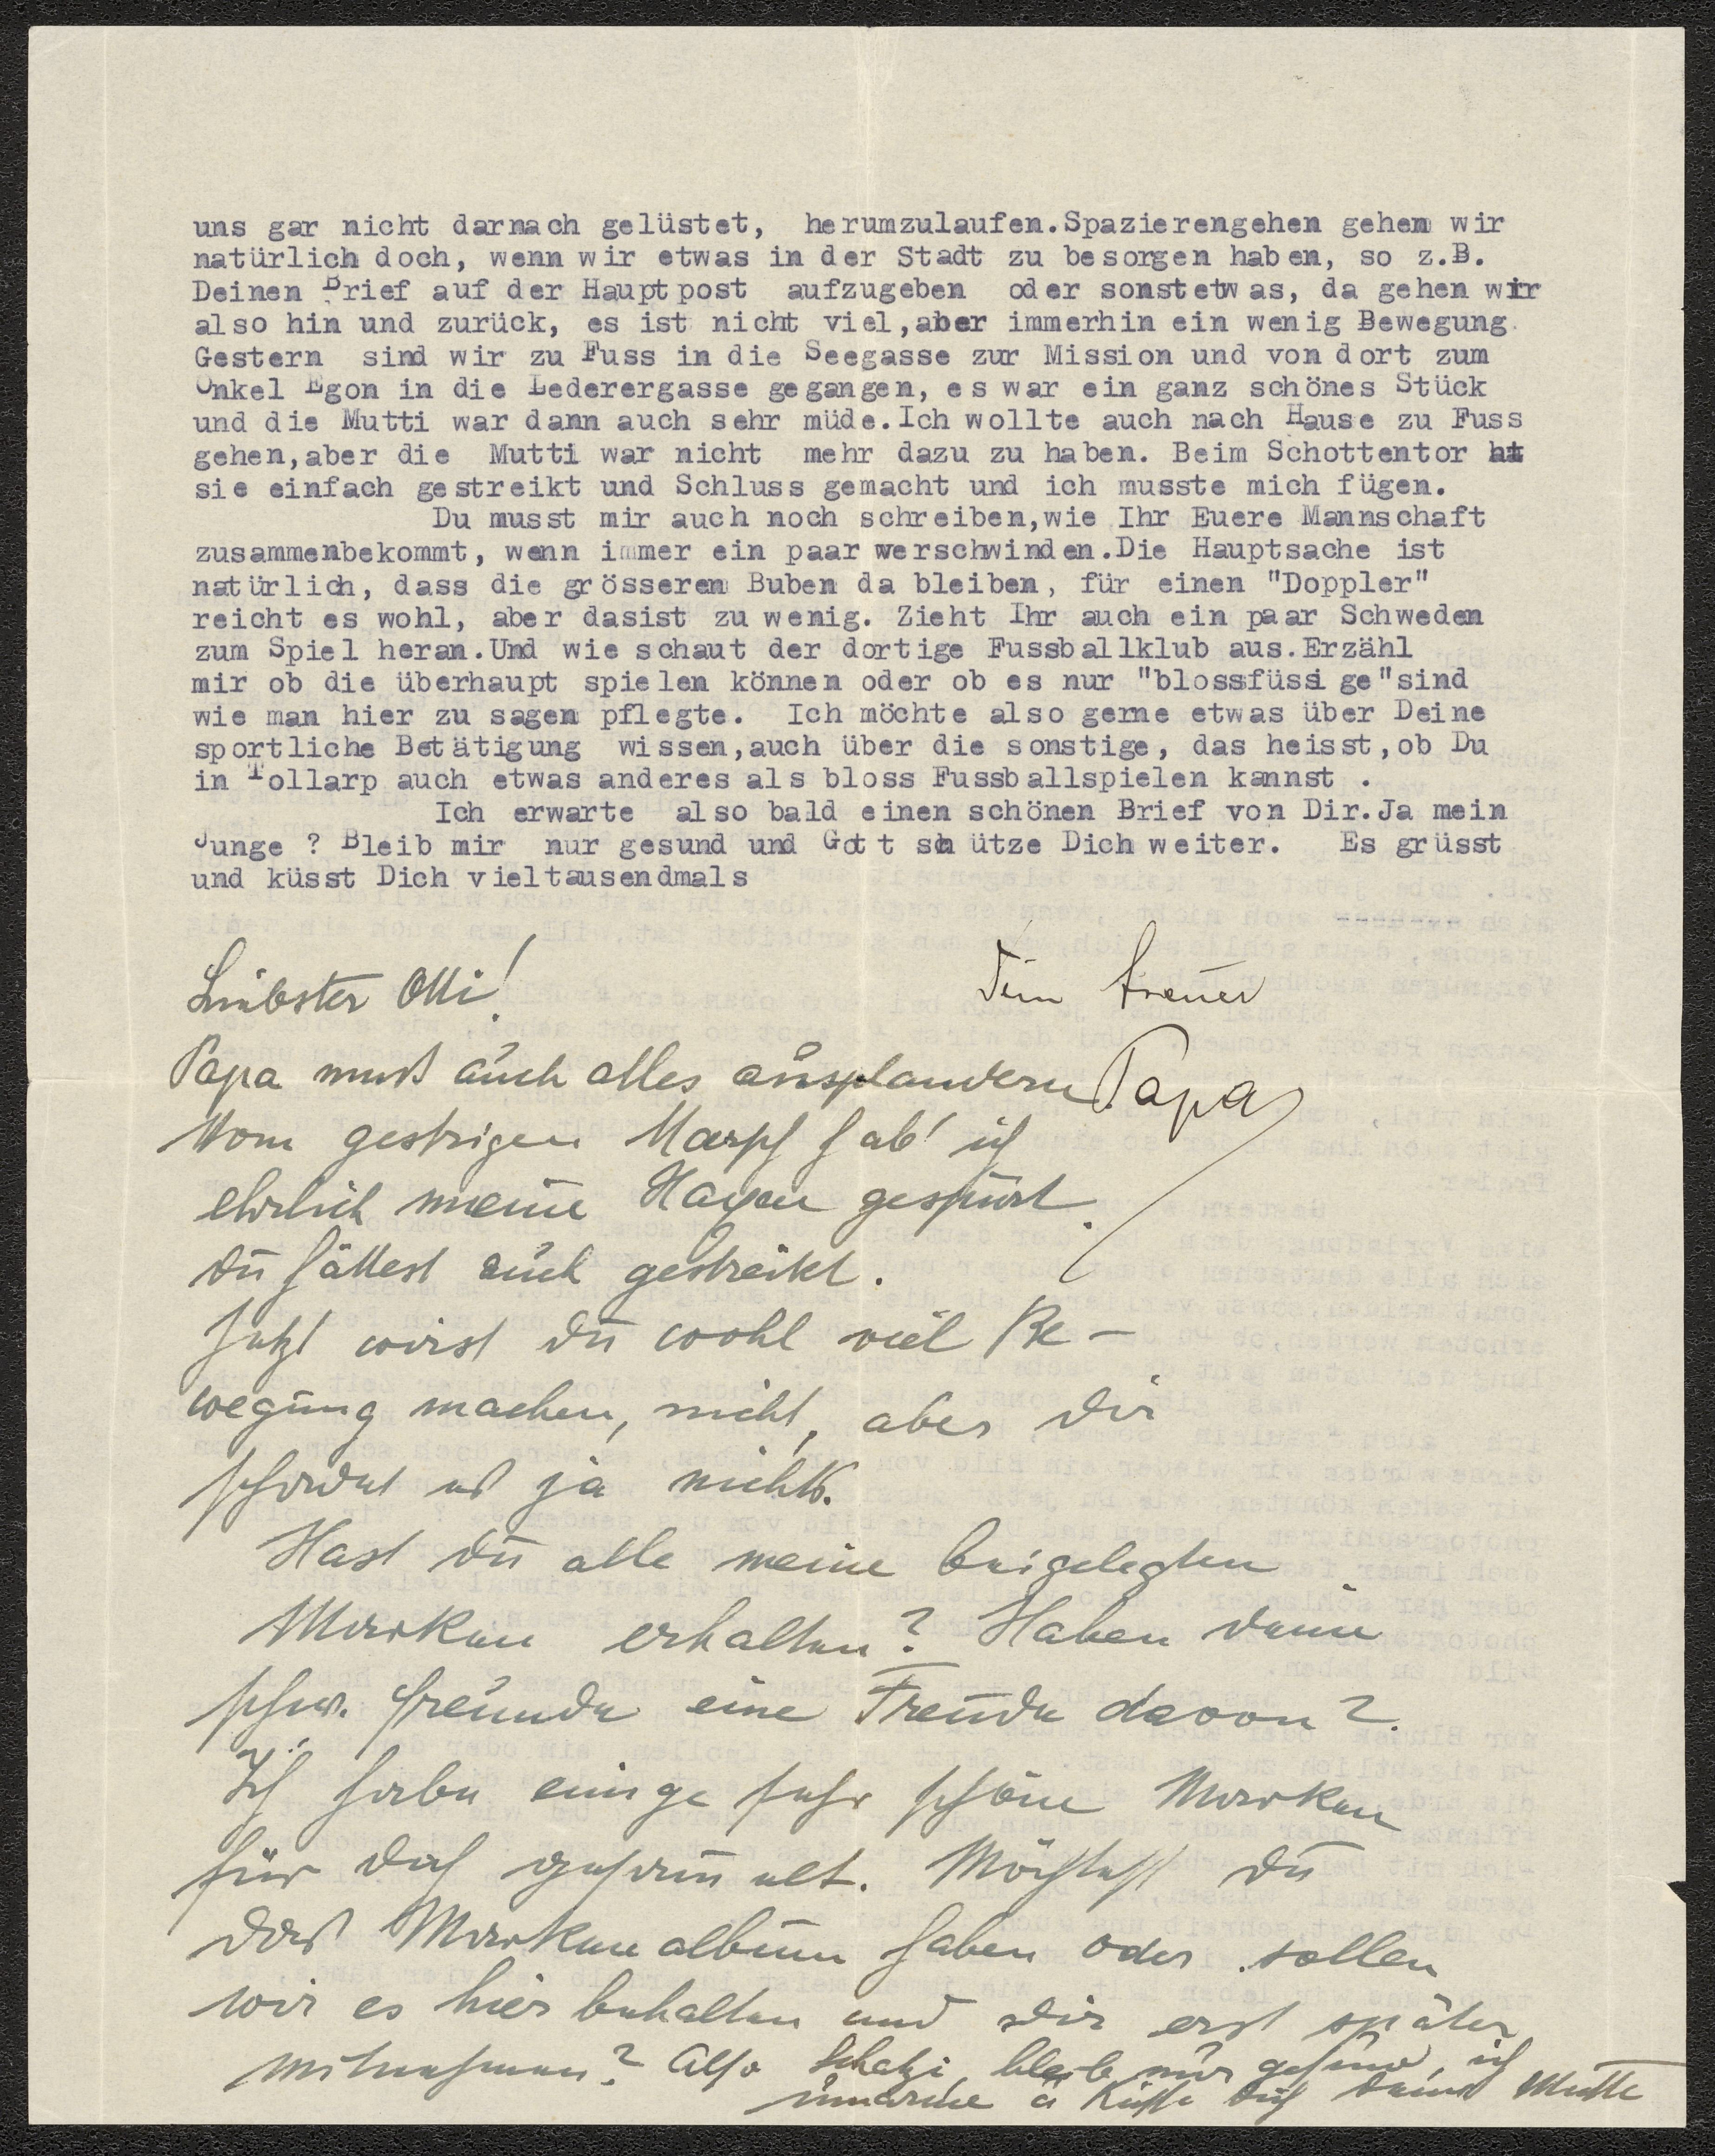 uns gar nicht darnach gelüstet, herumzulaufen.Spazierengehen gehen wir
natürlich doch, wenn wir etwas in der Stadt zu besorgen haben, so z.B.
Deinen Brief auf der Hauptpost aufzugeben oder sonstetwas, da gehen wir
also hin und zurück, es ist nicht viel,aber immerhin ein wenig Bewegung.
Gestern sind wir zu Fuss in die Seegasse zur Mission und von dort zum
Onkel Egon in die Lederergasse gegangen, es war ein ganz schönes Stück
und die Mutti war dann auch sehr müde.Ich wollte auch nach Hause zu Fuss
gehen,aber die Mutti war nicht mehr dazu zu haben. Beim Schottentor hat
sie einfach gestreikt und Schluss gemacht und ich musste mich fügen.
Du musst mir auch noch schreiben,wie Ihr Euere Mannschaft
zusammenbekommt, wenn immer ein paar verschwinden.Die Hauptsache ist
natürlich, dass die grösseren Buben da bleiben, für einen "Doppler"
reicht es wohl, aber dasist zu wenig. Zieht Ihr auch ein paar Schweden
zum Spiel heran.Und wie schaut der dortige Fussballklub aus.Erzähl
mir ob die überhaupt spielen können oder ob es nur "blossfüssige"sind
wie man hier zu sagen pflegte. Ich möchte also gerne etwas über Deine
sportliche Betätigung wissen,auch über die sonstige, das heisst,ob Du
in Tollarp auch etwas anderes als bloss Fussballspielen kannst .
Ich erwarte also bald einen schönen Brief von Dir.Ja mein
Junge ? Bleib mir nur gesund und Gott schütze Dich weiter. Es grüsst
und küsst Dich vieltausendmals
Dein treuer
Papa
Liebster Otti!
Papa muß auch alles ausplaudern
Vom gestrigen Marsch hab' ich
ehrlich meine Haxen gespürt.
Du hättest auch gestreikt.
Jetzt wirst Du wohl viel Be-
wegung machen, nicht, aber Dir
schadet es ja nichts.
Hast Du alle meine beigelegten
Marken erhalten? Haben Deine
schw. Freunde eine Freude davon?
Ich habe einige sehr schöne Marken
für Dich gesammelt. Möchtest Du
das Markenalbum haben oder sollen
wir es hier behalten und Dir erst später
mitnehmen? Also Schatzi, bleib nur gesund, ich
umarme u Küsse Dich Deine Mutti